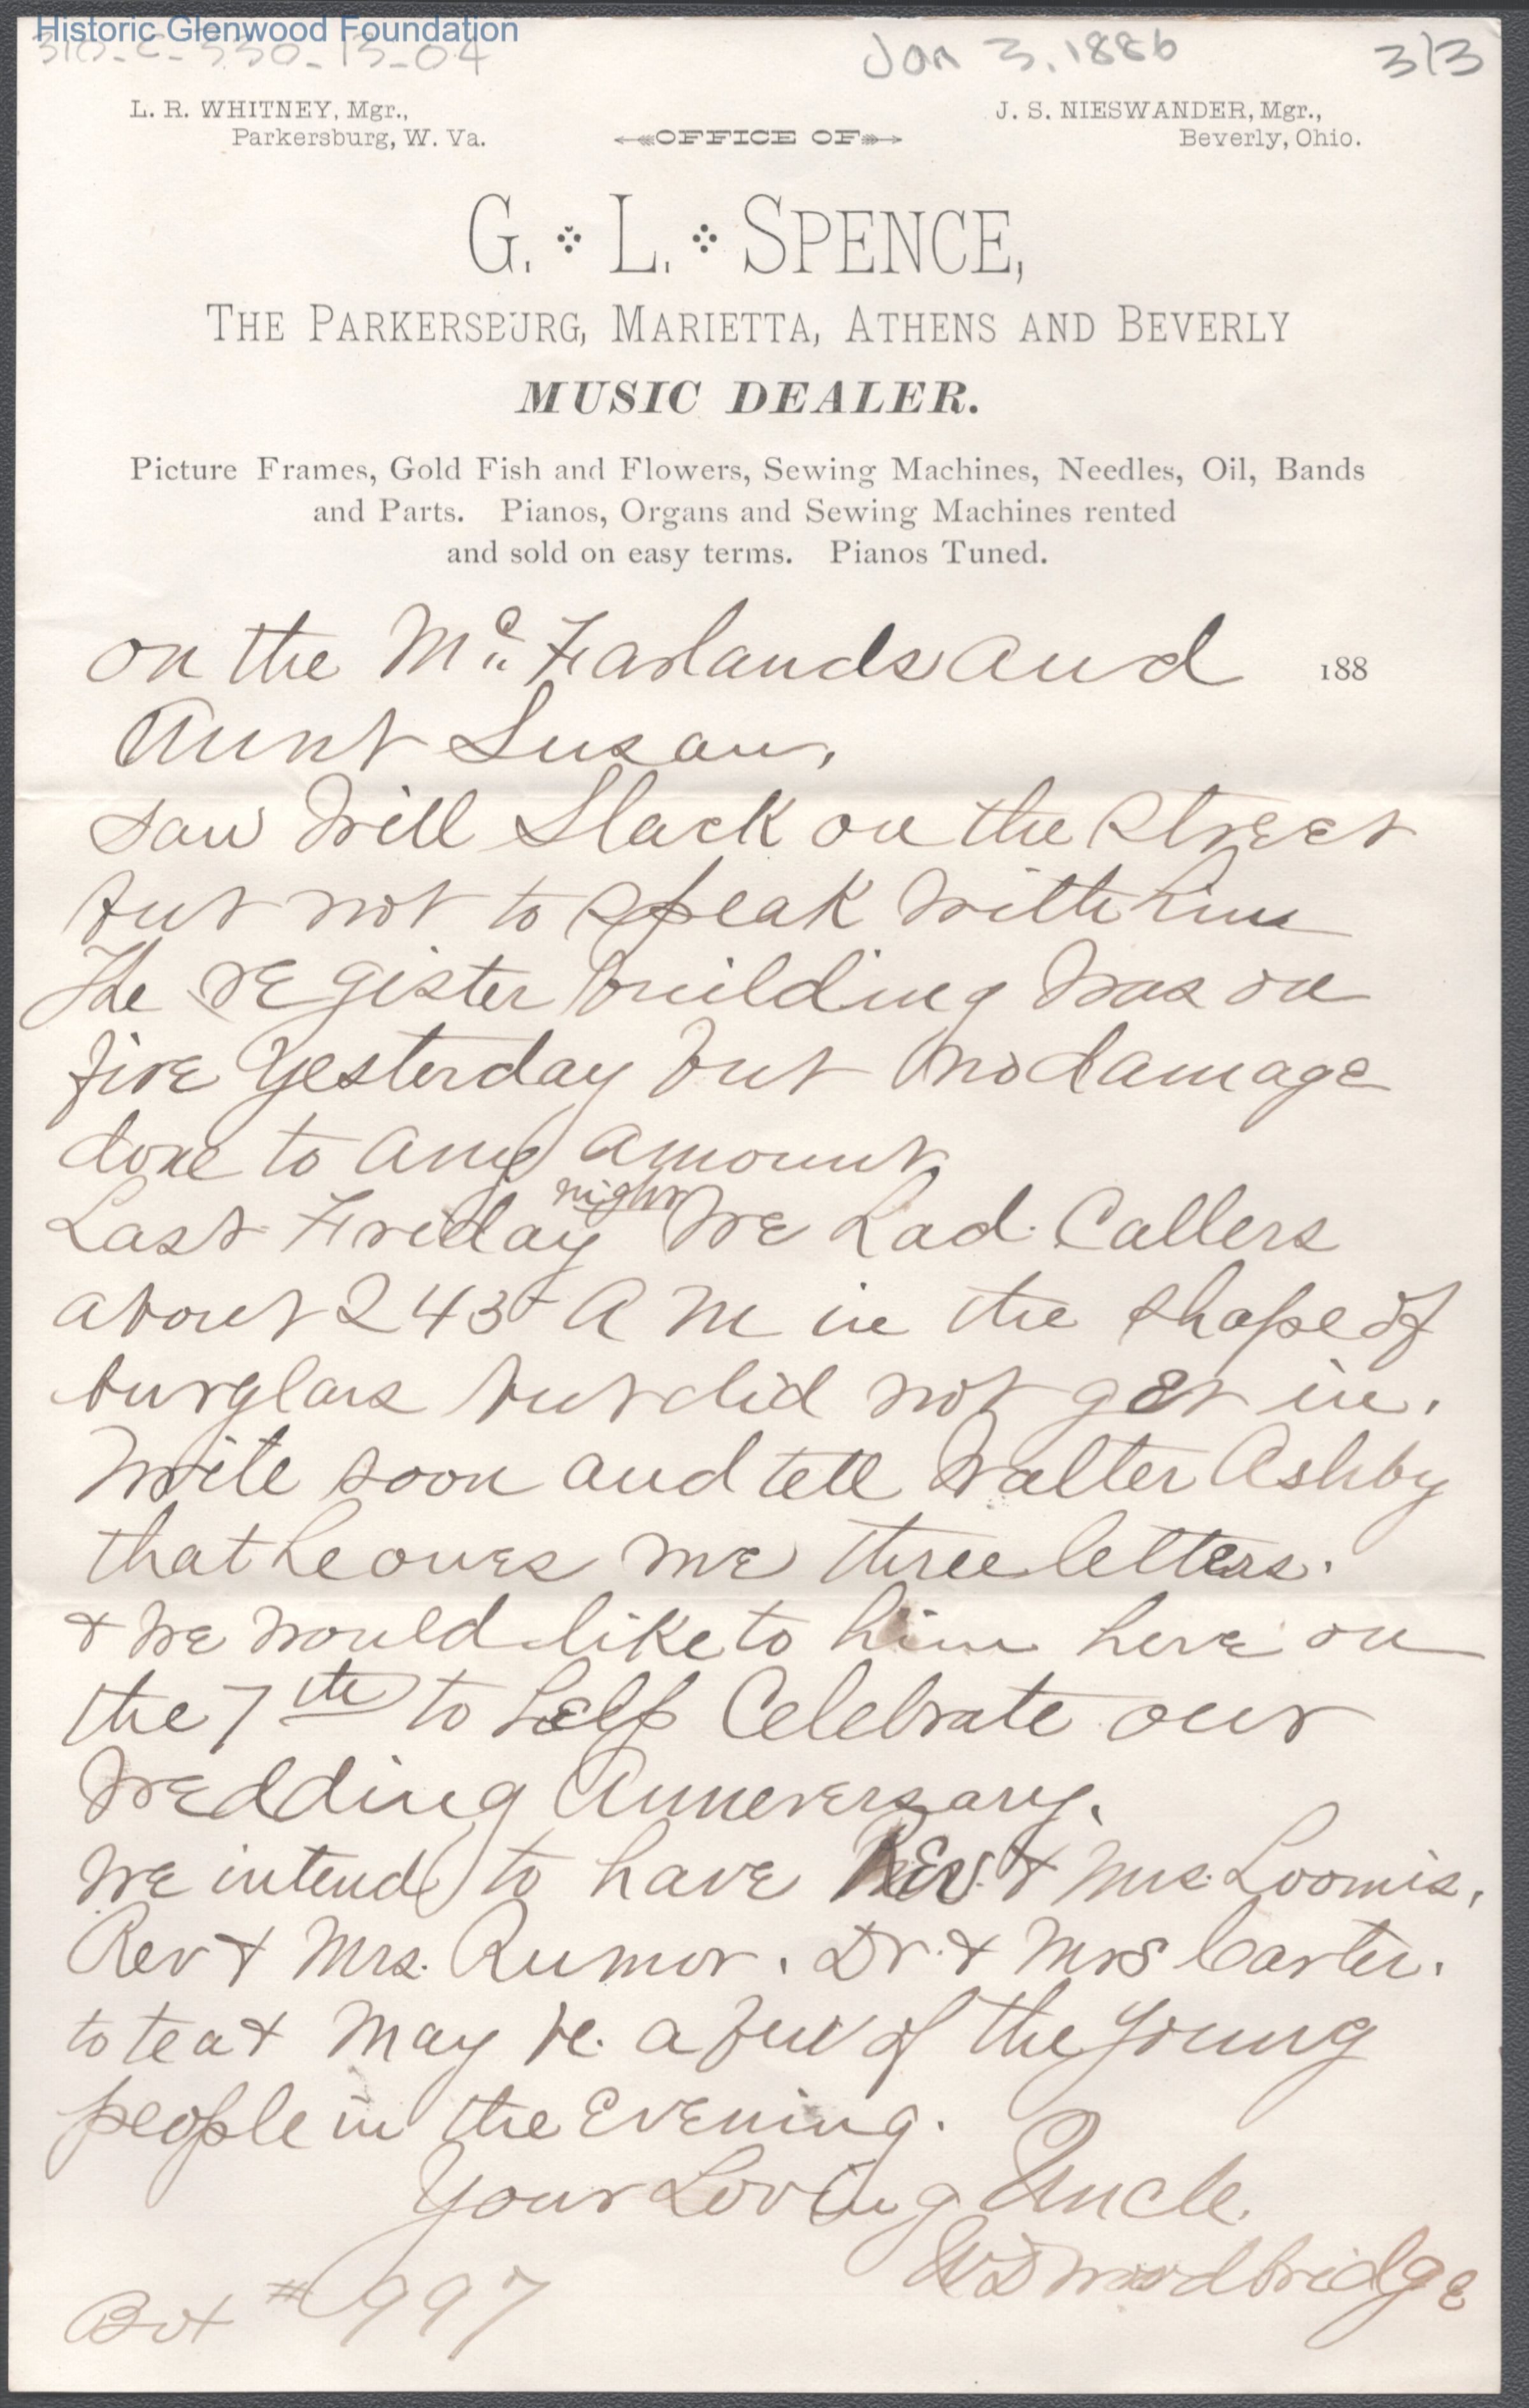 Historic Glenwood Foundation
310-C-330-13-04
Jan 3, 1886
3/3
L. R. WHITNEY, Mgr.,
Parkersburg, W. Va.
OFFICE OF
J. S. NIESWANDER, Mgr.,
Beverly, Ohio.
G. L. SPENCE,
THE PARKERSBURG, MARIETTA, ATHENS AND BEVERLY
MUSIC DEALER.
Picture Frames, Gold Fish and Flowers, Sewing Machines, Needles, Oil, Bands
and Parts. Pianos, Organs and Sewing Machines rented
and sold on easy terms. Pianos Tuned.
188
on the McFarlands and
Aunt Susan,
saw Will Slack on the Street
but not to speak with him
The register building was on
fire Yesterday but no damage
done to any amount
Last Friday night We had Callers
about 2 43 A M in the shape of
burglars but did not get in.
Write soon and tell Walter Ashby
that he owes me three letters.
& We would like to him here on
the 7th to help Celebrate our
Wedding Anneversary.
We intend to have Rev. & Mrs. Loomis,
Rev & Mrs. Rumor. Dr. & Mrs Carter.
to tea & may be. a few of the young
people in the Evening.
Your Loving Uncle.
W D Woodbridge
Box # 997